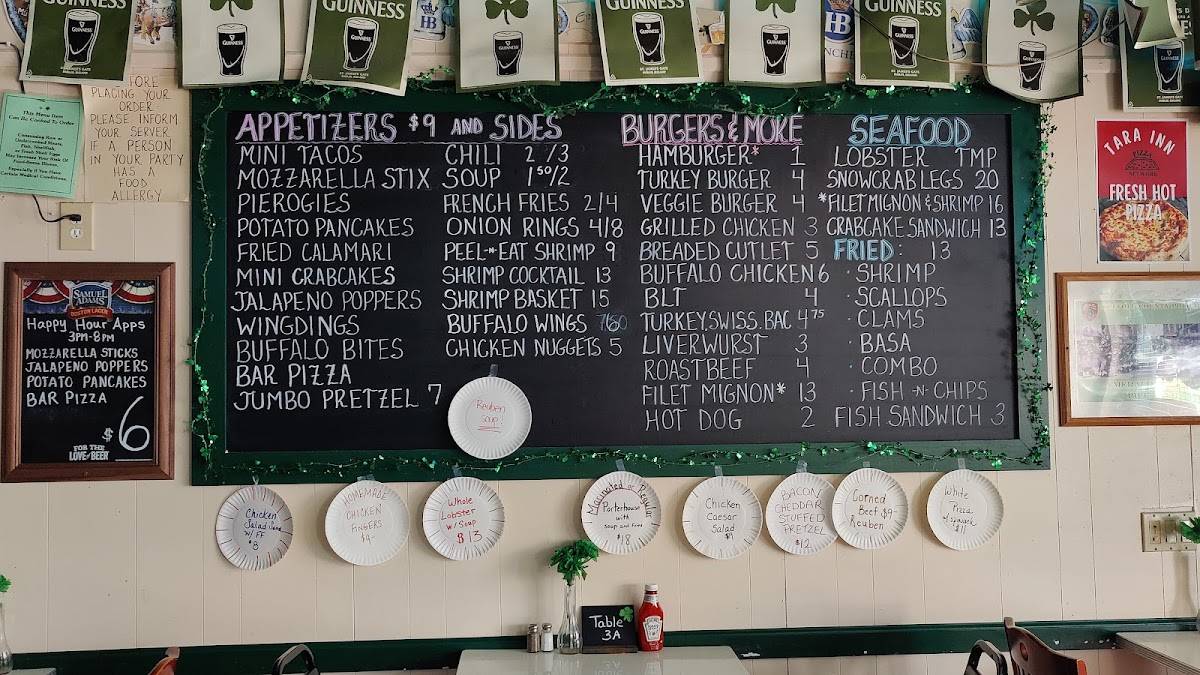 GUINNESS
GUINNESS
GUINNESS
GUINNESS
GUINNESS
GUINNESS
GUINNESS
GUINNESS
HB
This Menu Item
Can Be Cooked To Order
Consuming Raw or
Undercooked Meats,
Fish, Shellfish
or Fresh Shell Eggs
May Increase Your Risk Of
Foodborne Illness,
Especially if You Have
Certain Medical Conditions
PLACING YOUR
ORDER
PLEASE INFORM
YOUR SERVER
IF A PERSON
IN YOUR PARTY
HAS A
FOOD
ALLERGY
SAMUEL
ADAMS
BOSTON LAGER
Happy Hour Apps
3PM-8PM
MOZZARELLA STICKS
JALAPENO POPPERS
POTATO PANCAKES
BAR PIZZA
$6
FOR THE
LOVE OF BEER
APPETIZERS $9 AND SIDES
MINI TACOS
MOZZARELLA STIX
PIEROGIES
POTATO PANCAKES
FRIED CALAMARI
MINI CRABCAKES
JALAPENO POPPERS
WINGDINGS
BUFFALO BITES
BAR PIZZA
JUMBO PRETZEL 7
CHILI 2/3
SOUP 1⁵⁰/2
FRENCH FRIES 2/4
ONION RINGS 4/8
PEEL-N-EAT SHRIMP 9
SHRIMP COCKTAIL 13
SHRIMP BASKET 15
BUFFALO WINGS
CHICKEN NUGGETS 5
BURGERS & MORE
HAMBURGER* 1
TURKEY BURGER 4
VEGGIE BURGER 4
GRILLED CHICKEN 3
BREADED CUTLET 5
BUFFALO CHICKEN 6
BLT 4
TURKEY, SWISS, BAC 4⁷⁵
LIVERWURST 3
ROAST BEEF 4
FILET MIGNON* 13
HOT DOG 2
SEAFOOD
LOBSTER TMP
SNOWCRAB LEGS 20
*FILET MIGNON & SHRIMP 16
CRABCAKE SANDWICH 13
FRIED: 13
· SHRIMP
· SCALLOPS
· CLAMS
· BASA
· COMBO
· FISH-N-CHIPS
FISH SANDWICH 3
TARA INN
PIZZA
FRESH HOT
PIZZA
Reuben
Soup!
Chicken
Salad
w/ FF
$8
HOMEMADE
CHICKEN
FINGERS
$9-
Whole
Lobster
w/ Soup
$13
Marinated or Regular
Porterhouse
with
soup and fries
$18
Chicken
Caesar
Salad
$9
BACON
CHEDDAR
STUFFED
PRETZEL
$12
Corned
Beef $9-
Reuben
White
Pizza
$11
Table
3A
HEINZ